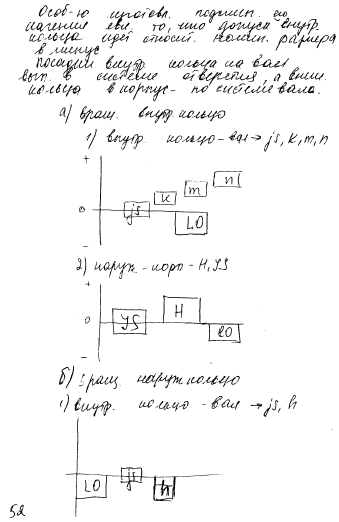 Особ-ю изготовл. подшип. со
начения евл то, что допуск внутр.
кольца идет относит. номин. размера
в минус
посадки внутр. кольца на вал
вып. в системе отверстия, а внеш.
кольца в корпус - по системе вала.
а) вращ. внутр. кольцо
1) внутр. кольцо - вал → js, k, m, n
+
js k m n
0
LO
-
2) наруж. - корп - H, JS
+
0 JS H
lO
-
б) вращ. наруж кольцо
1) внутр. кольцо - вал → js, h
LO js h
5а